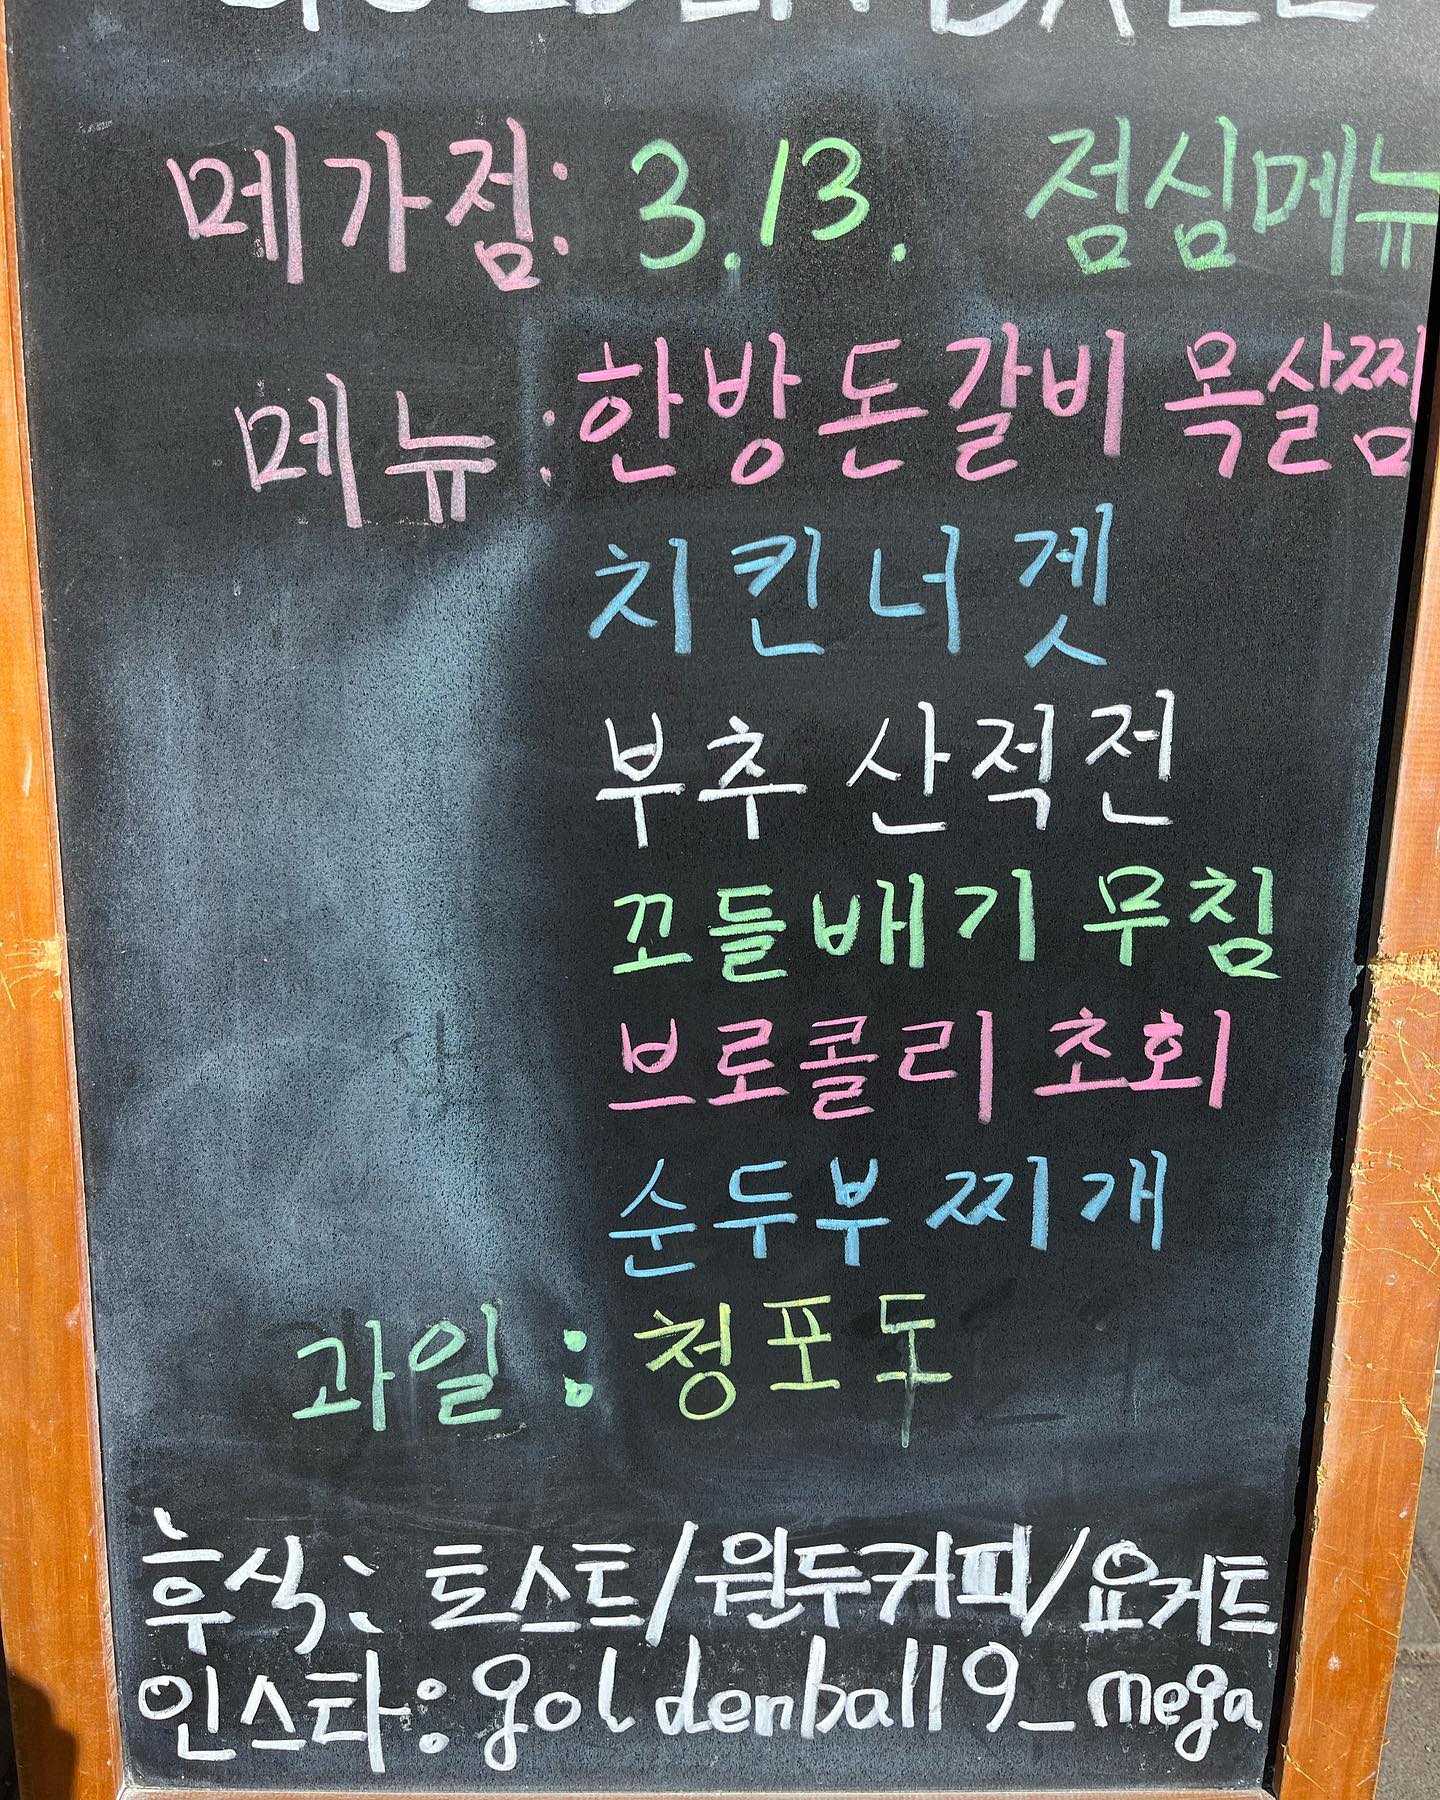 GOLDEN BALL
메가점: 3.13. 점심메뉴
메뉴: 한방돈갈비 목살찜
치킨너겟
부추 산적전
꼬들배기 무침
브로콜리 초회
순두부 찌개
과일: 청포도
후식: 토스트/원두커피/요거트
인스타: goldenball19_mega